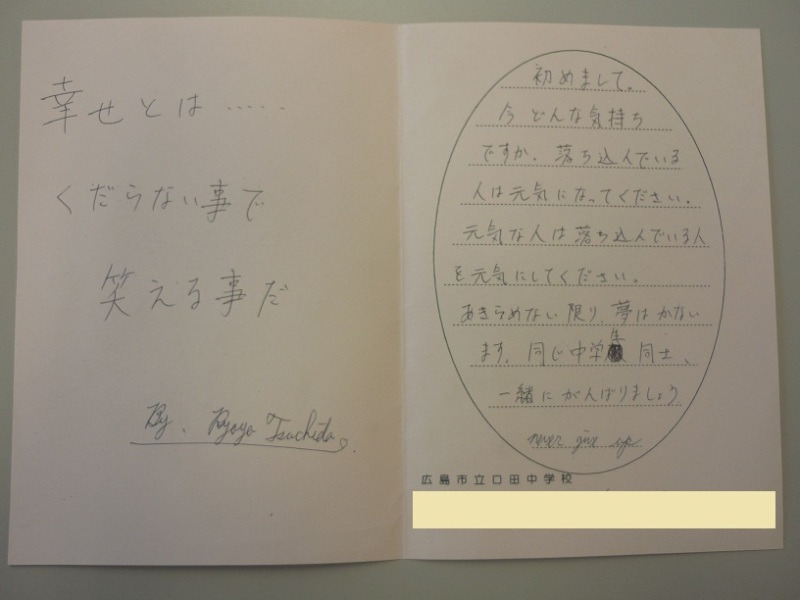 幸せとは‥‥‥
くだらない事で
笑える事だ
By.
初めまして。
今どんな気持ち
ですか。落ち込んでいる
人は元気になってください。
元気な人は落ち込んでいる人
を元気にしてください。
あきらめない限り、夢はかない
ます。同じ中学生同士、
一緒にがんばりましょう
never give up
広島市立口田中学校